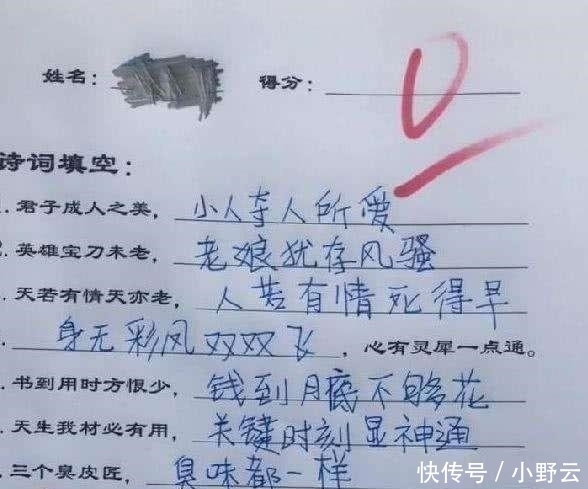 姓名： 得分： 0
诗词填空：
. 君子成人之美， 小人夺人所爱
. 英雄宝刀未老， 老娘犹存风骚
. 天若有情天亦老， 人若有情死得早
. 身无彩凤双双飞 ，心有灵犀一点通。
. 书到用时方恨少， 钱到月底不够花
. 天生我材必有用， 关键时刻显神通
. 三个臭皮匠， 臭味都一样
快传号／小野云